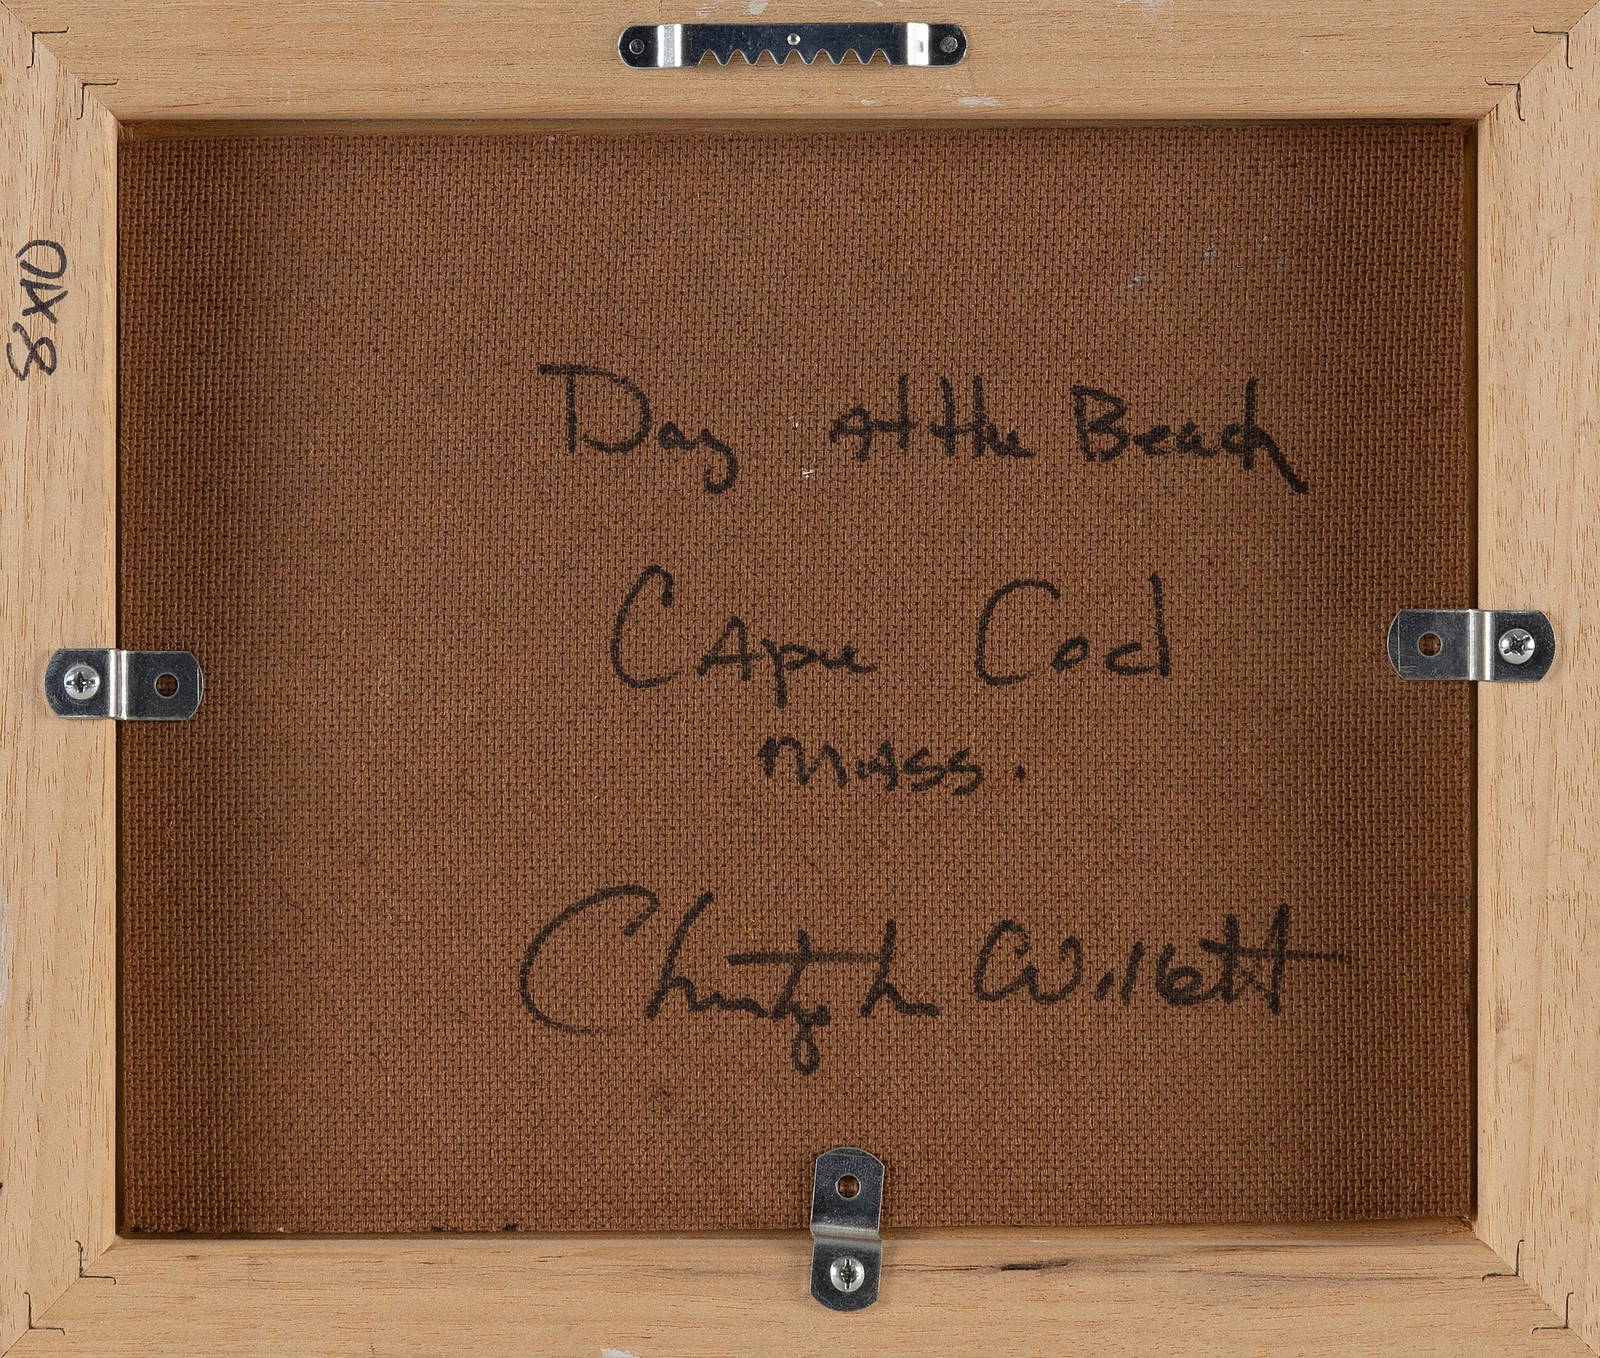 8x10
Day At the Beach
Cape Cod
Mass.
Christopher Willett